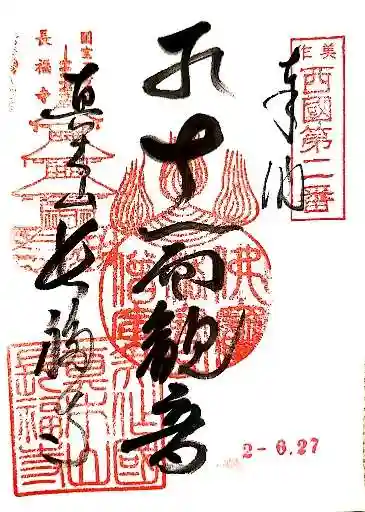 美作
西國第二番
奉納
十一面観音
真木山
長福寺
佛法僧寳
長福寺
2-6.27